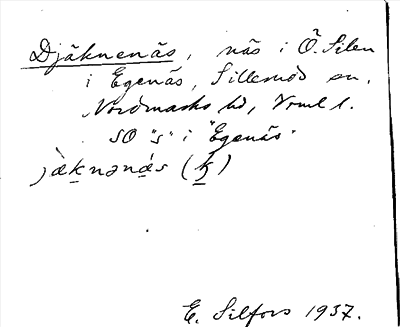 Djäknenäs, näs i Ö. Silen
i Egenäs, Sillerud sn,
Nordmarks hd, Vrml l.
SO "s" i "Egenäs"
jæ̀k̠nənǽ̠s (k̠)
E. Silfors 1937.